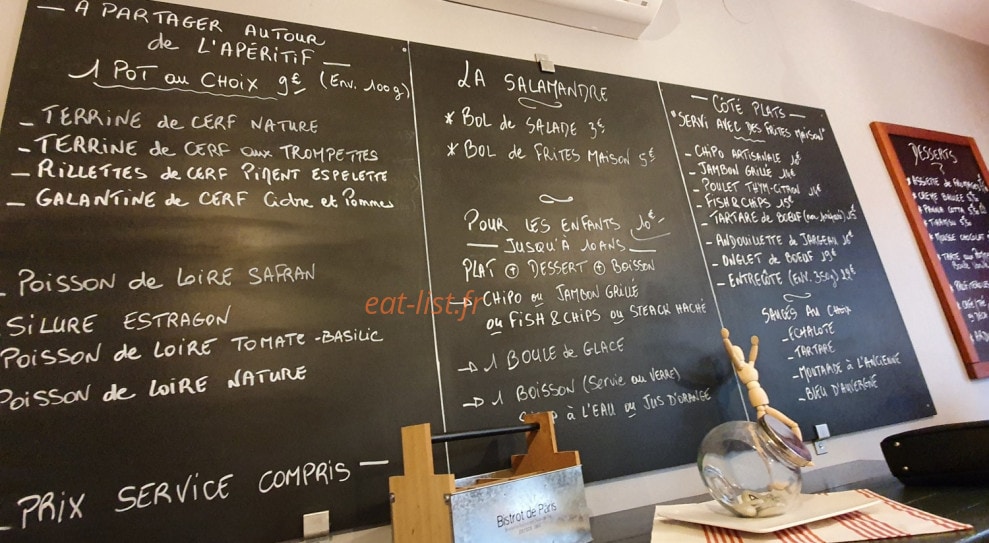 — A PARTAGER AUTOUR
de L'APÉRITIF —
1 POT au CHOIX 9€ (Env. 100g)
- TERRINE de CERF NATURE
- TERRINE de CERF aux TROMPETTES
- RILLETTES de CERF PIMENT ESPELETTE
- GALANTINE de CERF Cidre et Pommes
- POISSON de LOIRE SAFRAN
- SILURE ESTRAGON
POISSON de LOIRE TOMATE-BASILIC
POISSON de LOIRE NATURE
- PRIX SERVICE COMPRIS —
LA SALAMANDRE
* BOL de SALADE 3€
* BOL de FRITES MAISON 5€
POUR LES ENFANTS 10€
— JUSQU'À 10 ANS —
PLAT + DESSERT + BOISSON
→ CHIPO ou JAMBON GRILLÉ
ou FISH & CHIPS ou STEACK HACHÉ
→ 1 BOULE de GLACE
→ 1 BOISSON (Servie au VERRE)
à L'EAU ou JUS D'ORANGE
— CÔTÉ PLATS —
"SERVI AVEC DES FRITES MAISON"
- CHIPO ARTISANALE
- JAMBON GRILLÉ
- POULET THYM-CITRON
- FISH & CHIPS
- TARTARE de BOEUF
- ANDOUILLETTE de JARGEAU
- ONGLET de BOEUF
- ENTRECÔTE (ENV. 350g)
SAUCES AU CHOIX
- ECHALOTE
- TARTARE
- MOUTARDE à L'ANCIENNE
- BLEU D'AUVERGNE
DESSERTS
* ASSIETTE de FROMAGES
* CRÈME BRULÉE
* PANNA COTTA
* TIRAMISU
* MOUSSE CHOCOLAT
eat-list.fr
Bistrot de Paris